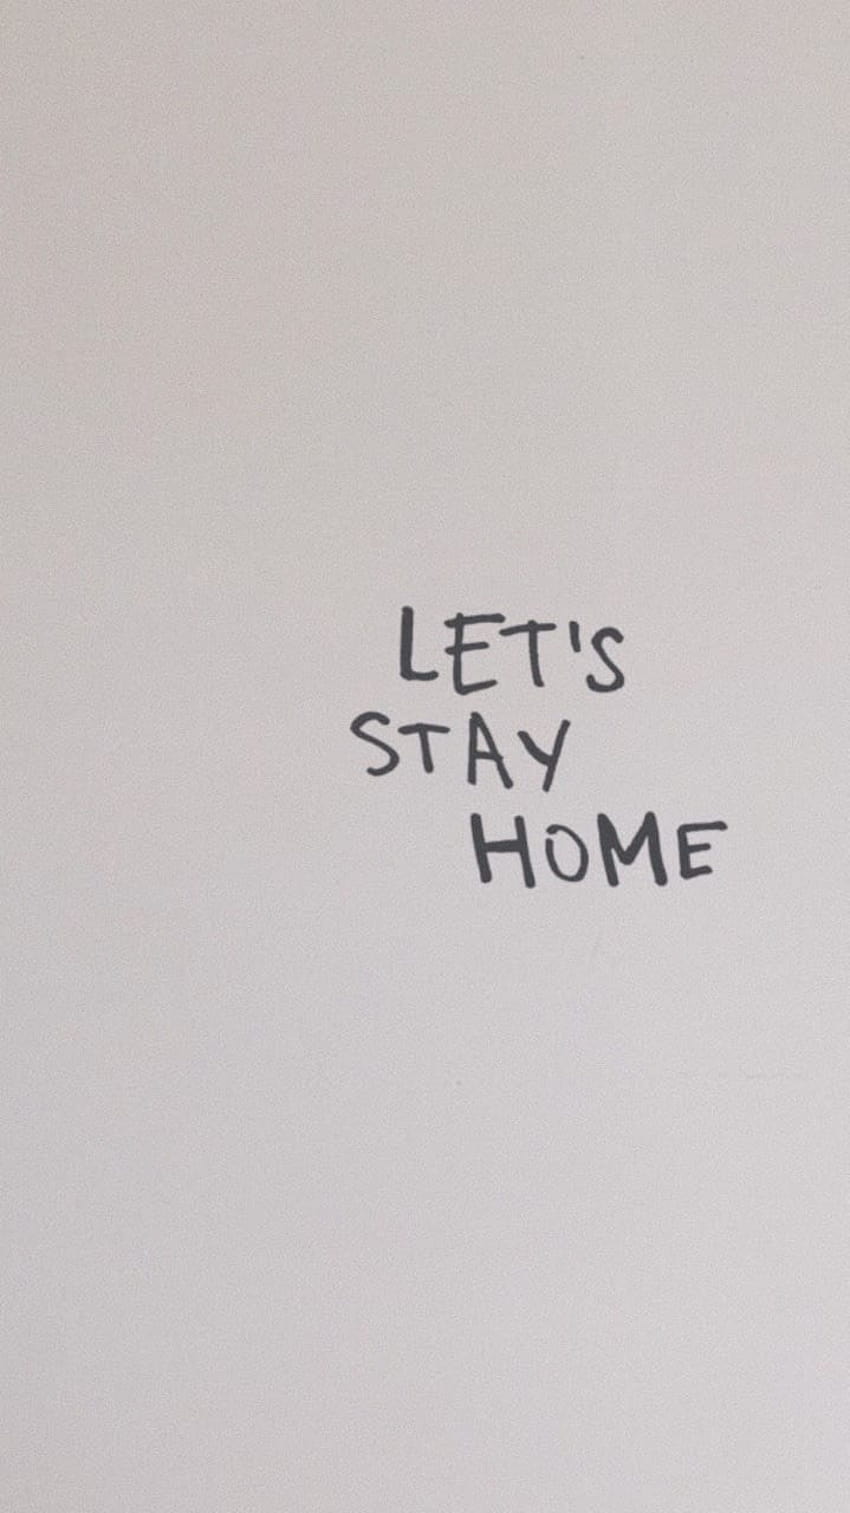 LET'S
STAY
HOME